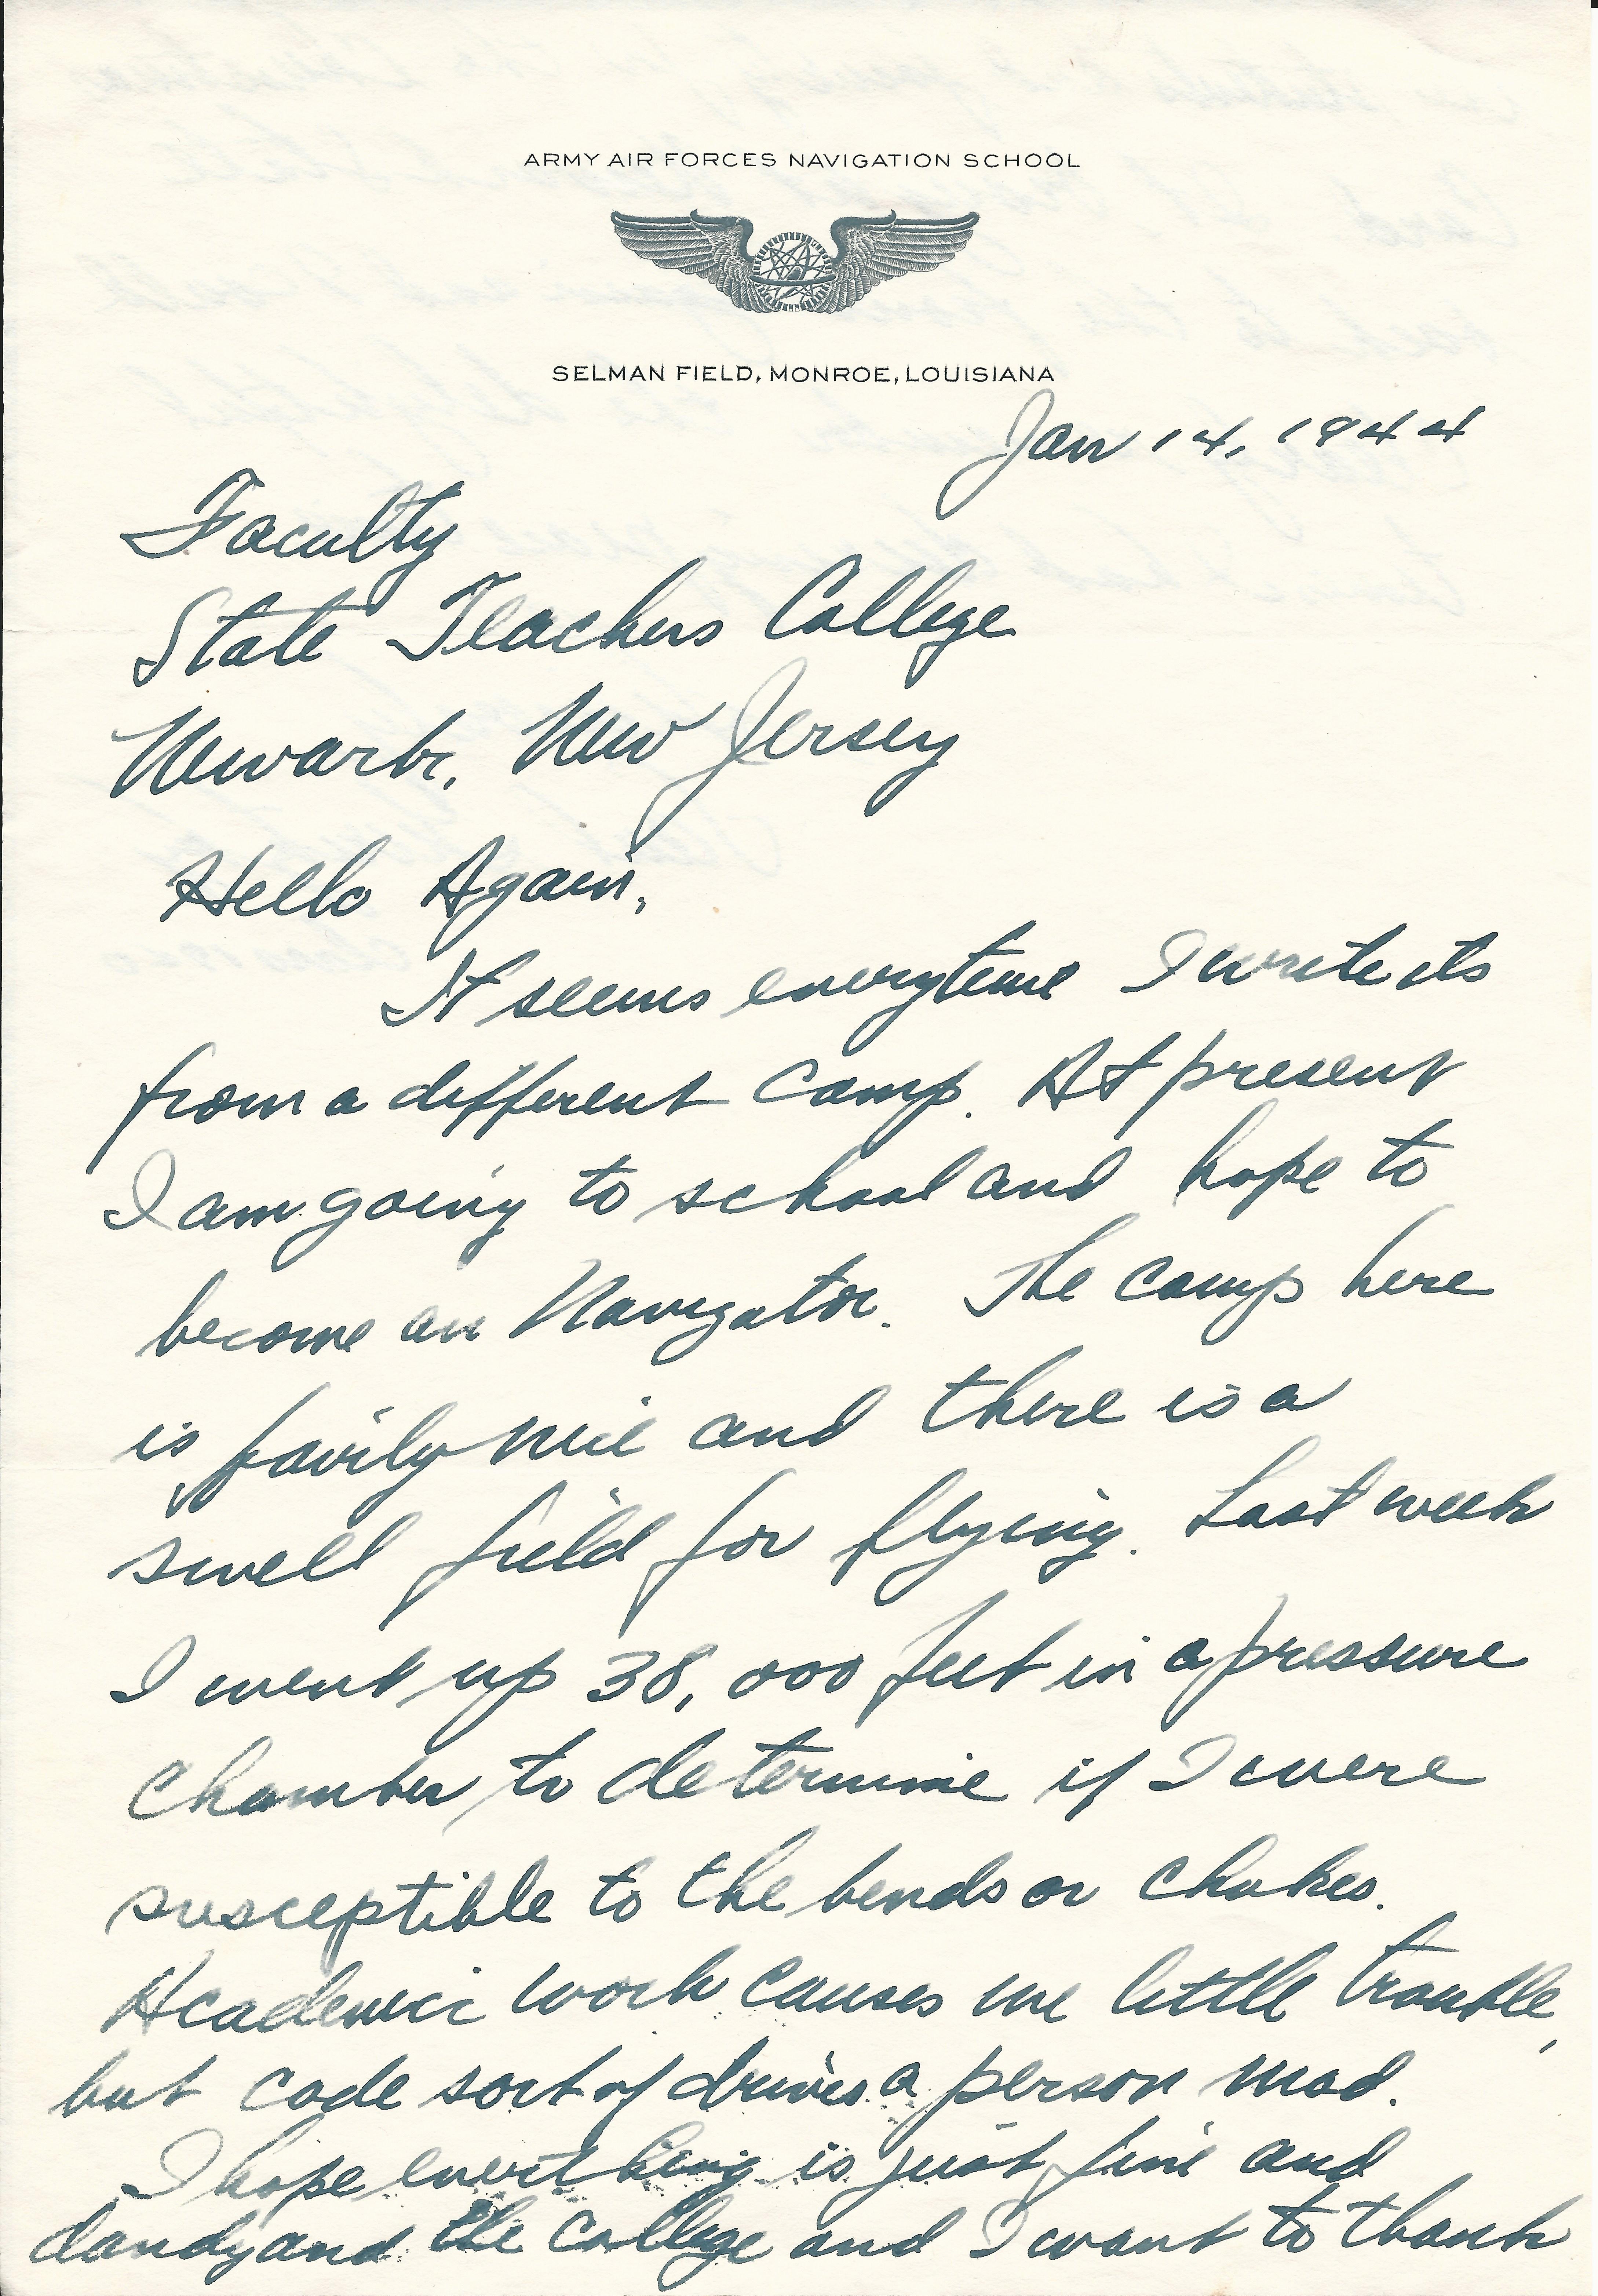 ARMY AIR FORCES NAVIGATION SCHOOL
SELMAN FIELD, MONROE, LOUISIANA
Jan 14, 1944
Faculty
State Teachers College
Newark, New Jersey
Hello Again,
It seems everytime I write its
from a different camp. At present
I am going to school and hope to
become an Navigator. The camp here
is fairly nice and there is a
swell field for flying. Last week
I went up 38,000 feet in a pressure
chamber to determine if I were
susceptible to the bends or chokes.
Academic work causes me little trouble,
but code sort of drives a person mad.
I hope everything is just fine and
dandy and the college and I want to thank